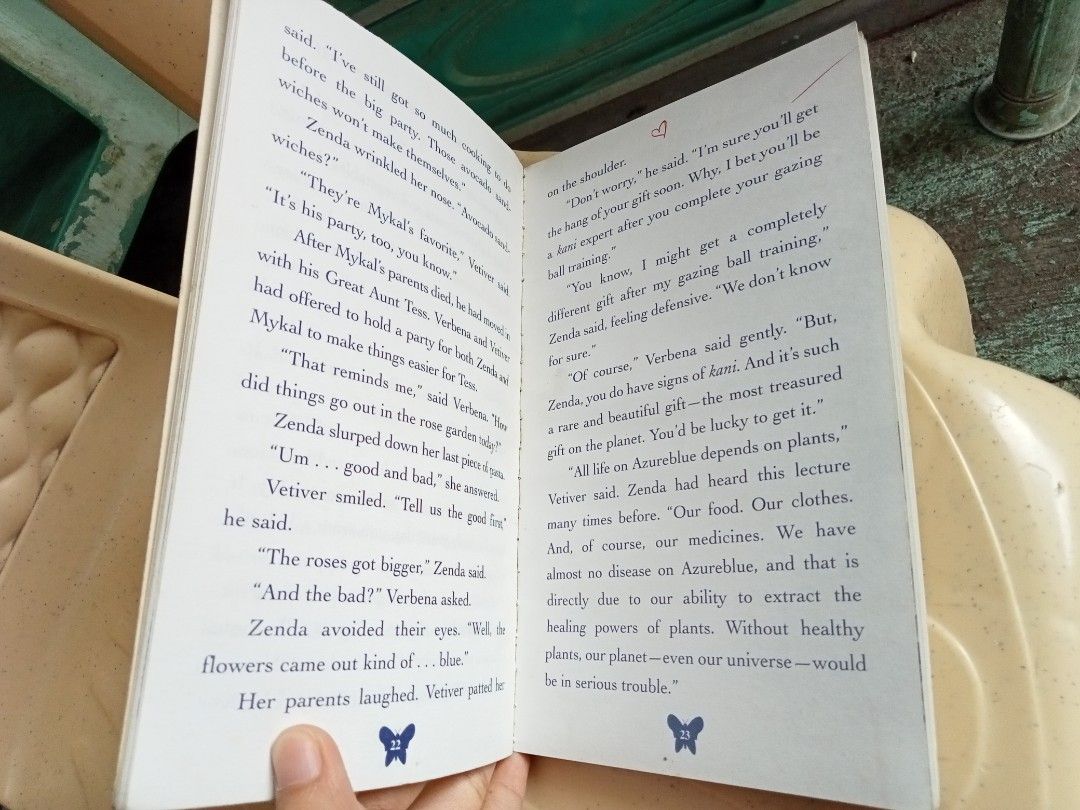 said. “I’ve still got so much cooking to do
before the big party. Those avocado sand-
wiches won’t make themselves.”
Zenda wrinkled her nose. “Avocado sand-
wiches?”
“They’re Mykal’s favorite,” Vetiver said.
“It’s his party, too, you know.”
After Mykal’s parents died, he had moved in
with his Great Aunt Tess. Verbena and Vetiver
had offered to hold a party for both Zenda and
Mykal to make things easier for Tess.
“That reminds me,” said Verbena. “How
did things go out in the rose garden today?”
Zenda slurped down her last piece of pasta.
“Um . . . good and bad,” she answered.
Vetiver smiled. “Tell us the good first,”
he said.
“The roses got bigger,” Zenda said.
“And the bad?” Verbena asked.
Zenda avoided their eyes. “Well, the
flowers came out kind of . . . blue.”
Her parents laughed. Vetiver patted her
22
on the shoulder.
“Don’t worry,” he said. “I’m sure you’ll get
the hang of your gift soon. Why, I bet you’ll be
a kani expert after you complete your gazing
ball training.”
“You know, I might get a completely
different gift after my gazing ball training,”
Zenda said, feeling defensive. “We don’t know
for sure.”
“Of course,” Verbena said gently. “But,
Zenda, you do have signs of kani. And it’s such
a rare and beautiful gift—the most treasured
gift on the planet. You’d be lucky to get it.”
“All life on Azureblue depends on plants,”
Vetiver said. Zenda had heard this lecture
many times before. “Our food. Our clothes.
And, of course, our medicines. We have
almost no disease on Azureblue, and that is
directly due to our ability to extract the
healing powers of plants. Without healthy
plants, our planet—even our universe—would
be in serious trouble.”
23